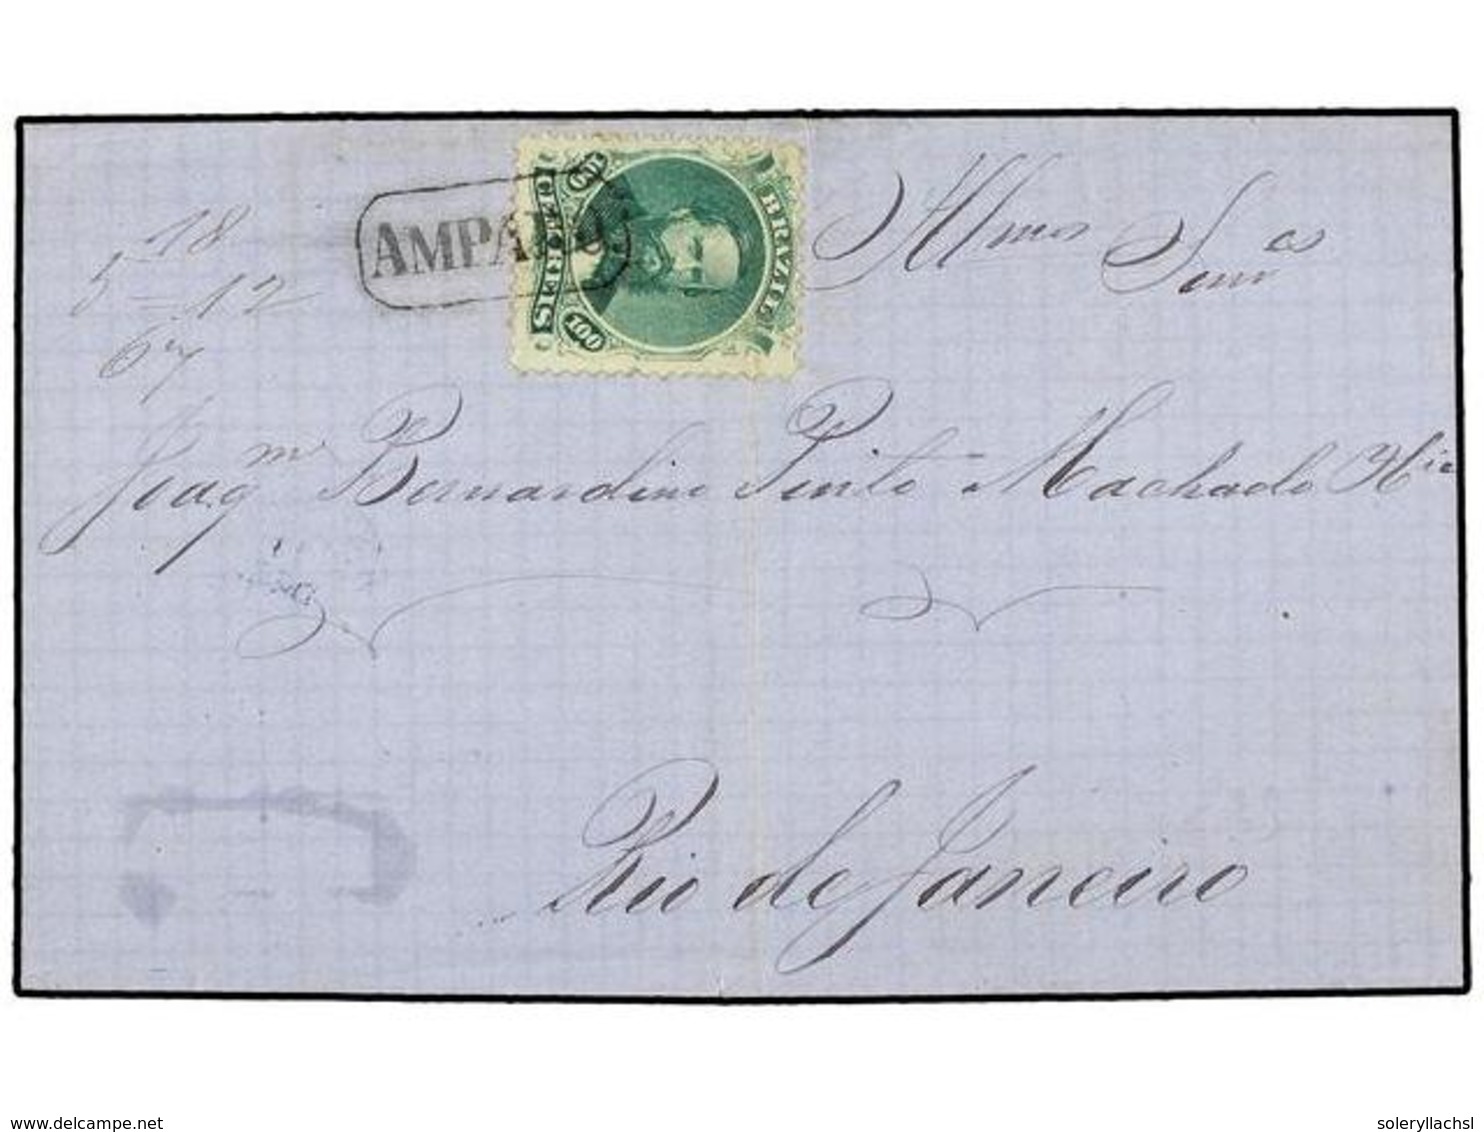 AMPARO
BRAZIL
100
100
18
5 - 12
67
Illmos Senres
Joaqm Bernardino Pinto Machado &
Rio de Janeiro
delcampe.net
soleryllachsl